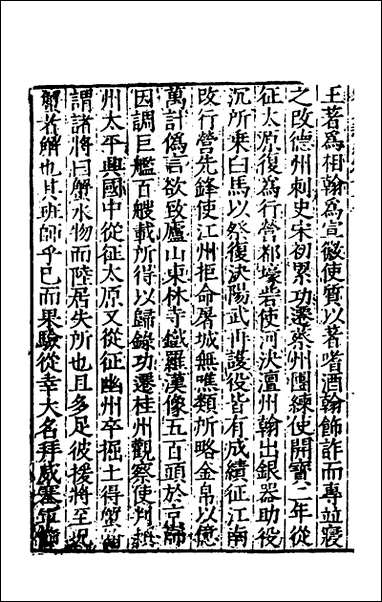 王著爲相翰爲宣徽使質以著嗜酒翰飾詐而專並寢
之改德州刺史宋初累功遷蔡州團練使開寶二年從
征太原復爲行營都壕砦使河決澶州翰出銀器助役
沉所乗白馬以祭復決陽武再護役皆有成績征江南
攺行營先鋒使江州拒命屠城無噍類所略金帛以億
萬計僞言欲致廬山東林寺鐵羅漢像五百頭於京師
因調巨艦百艘載所得以歸錄功遷桂州觀察使判
州太平興國中從征太原又從征幽州卒掘土得蟹
謂諸將曰蟹水物而陸居失所也且多足彼援將至况
蟹者解也其班師乎已而果驗從幸大名拜威塞軍節